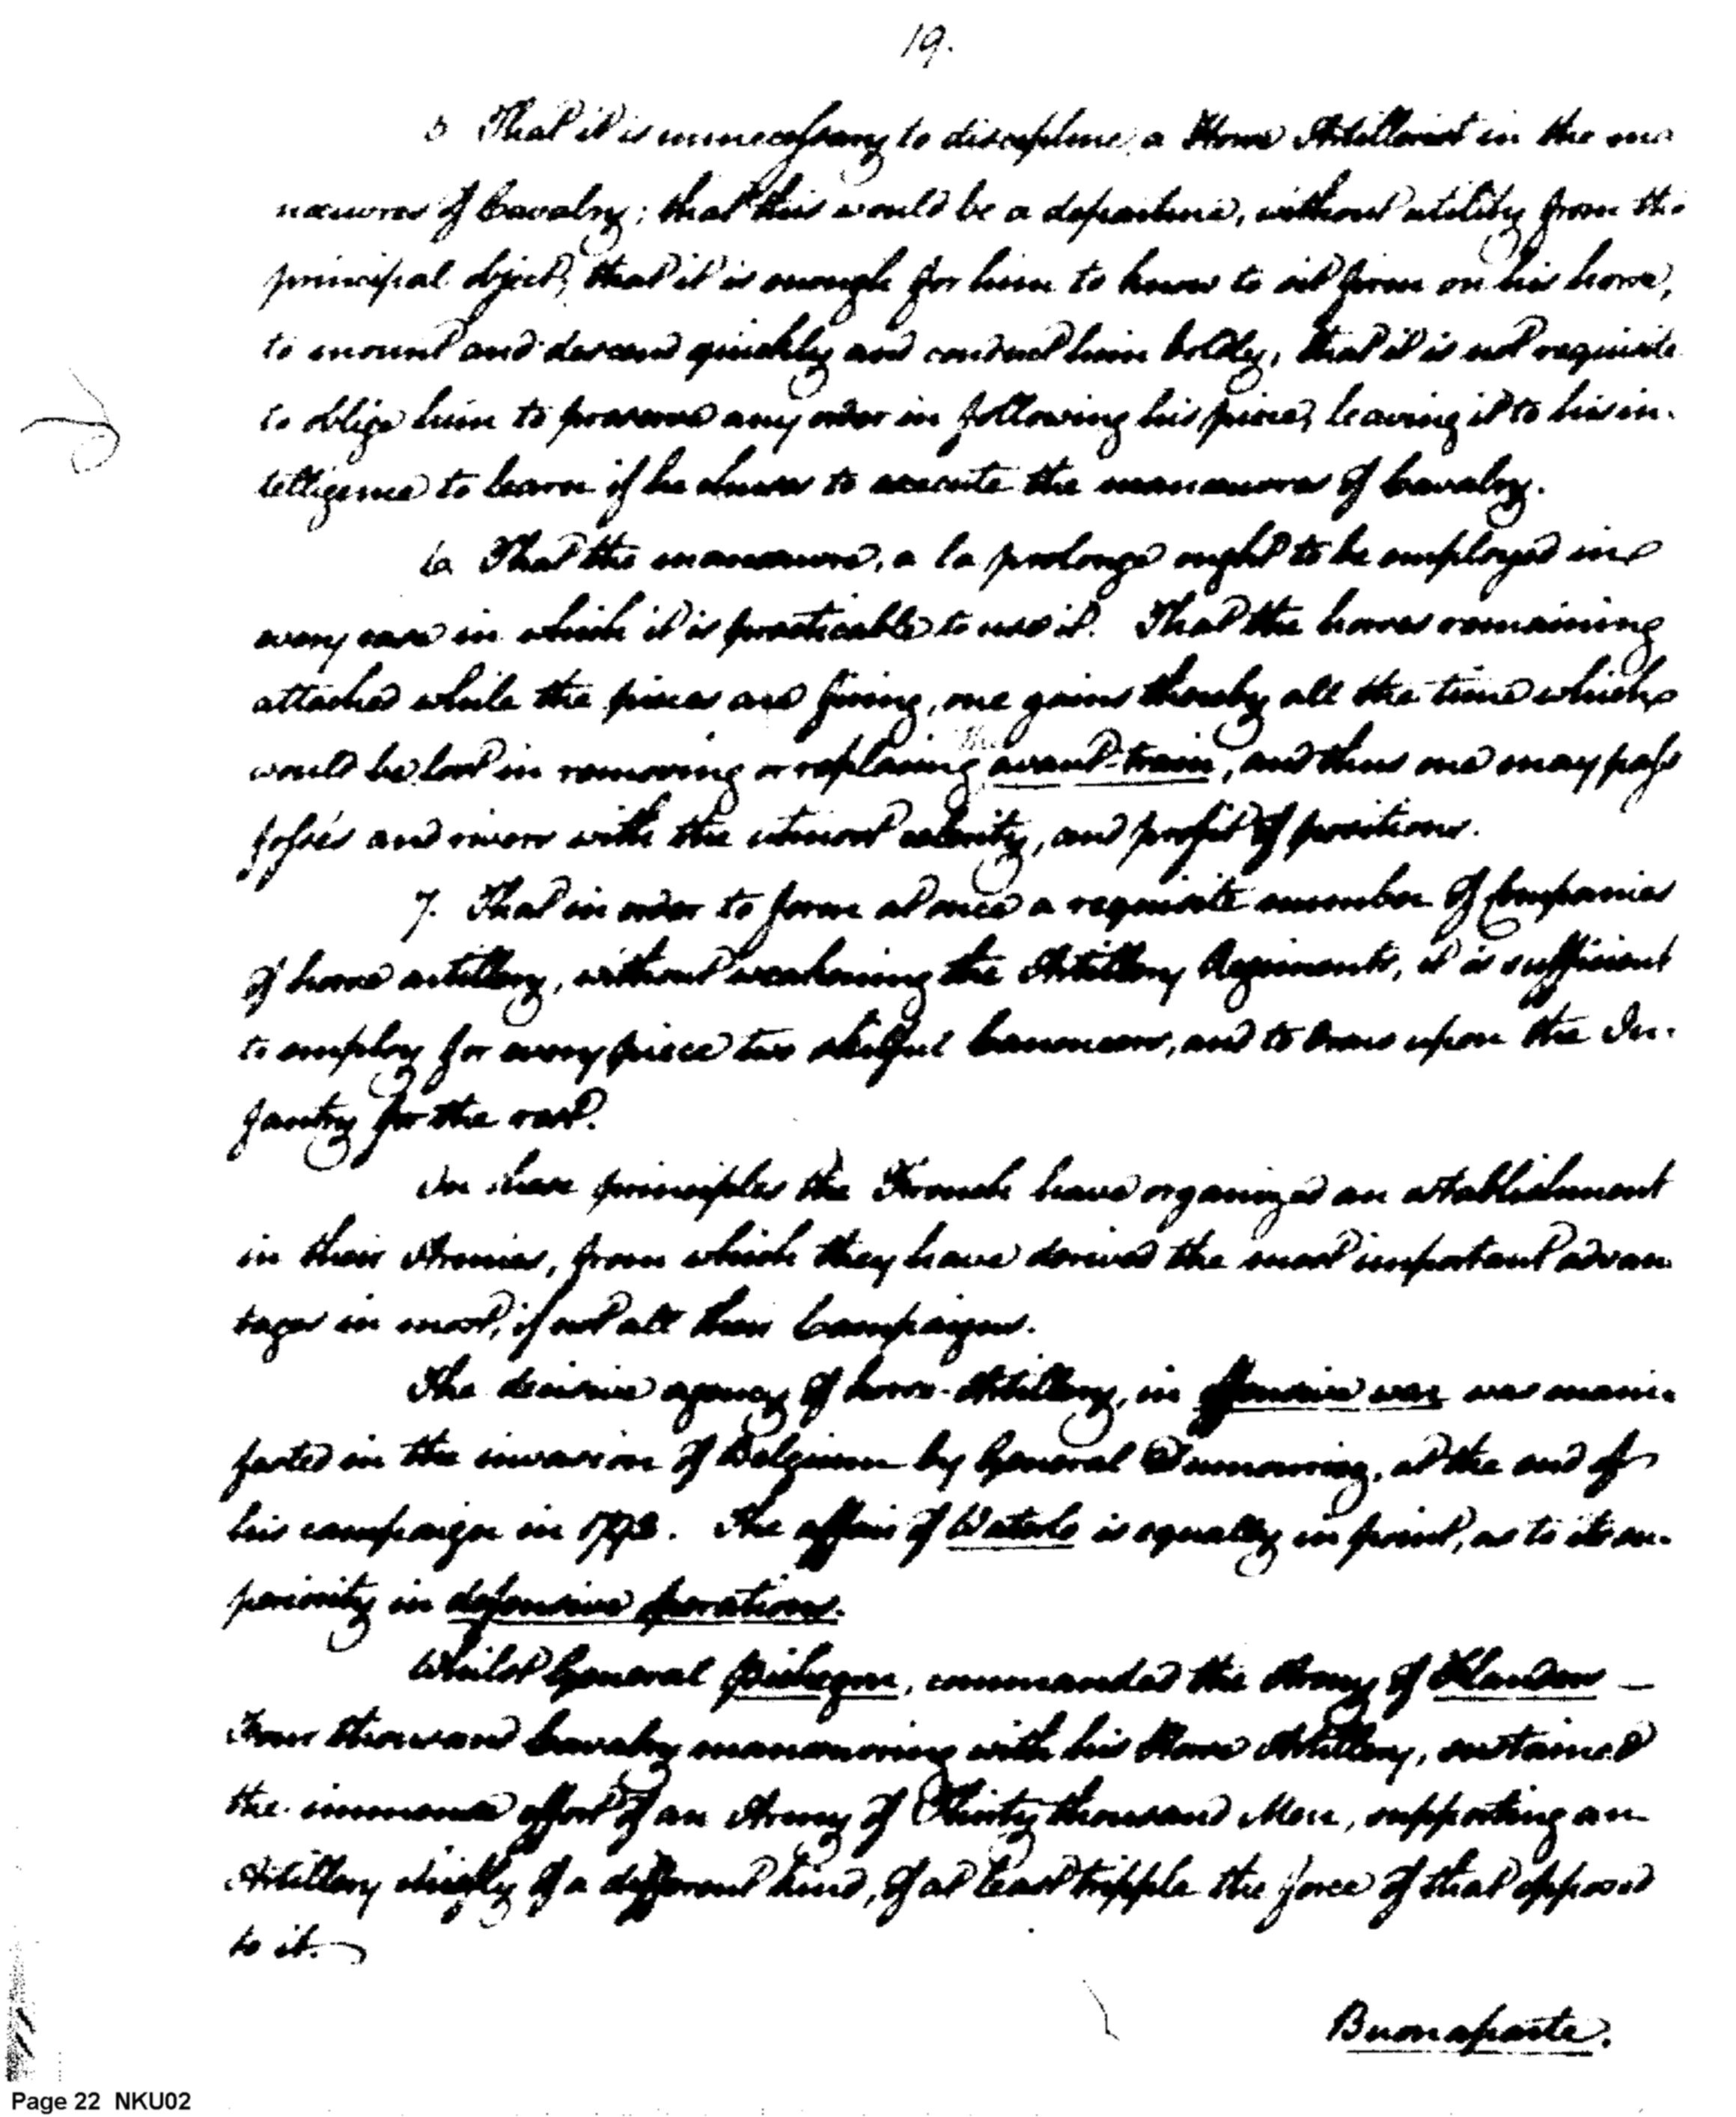 19.
5 That it is unnecessary to discipline a Horse Artillerist in the ma
nœuvres of Cavalry; that this would be a departure, without utility from the
principal object; that it is enough for him to know to sit firm on his horse,
to mount and descend quickly and conduct him boldly, that it is not requisite
to oblige him to preserve any order in following his piece, leaving it to his in-
telligence to learn if he chuses to execute the manœuvres of Cavalry.
6. That the manœuvre, a la prolonge ought to be employed in
every case in which it is practicable to use it. That the horses remaining
attached while the pieces are firing, one gains thereby all the time which
would be lost in removing or replacing the avant-train, and thus one may pass
fossés and rivers with the utmost celerity, and profit of positions.
7. That in order to form at once a requisite number of Companies
of horse artillery, without weakening the Artillery Regiments, it is sufficient
to employ for every piece two skilful Canoneers, and to draw upon the In-
fantry for the rest.
On these principles the French have organized an establishment
in their Armies, from which they have derived the most important advan
tages in most, if not all their Campaigns.
The decisive agency of horse-Artillery, in offensive war was mani-
fested in the invasion of Belgium by General Dumourier, at the end of
his campaign in 1792. The affair of Waterlo is equally in point, as to its su-
periority in defensive operations.
Whilst General Pichegru, commanded the Army of Flanders —
Four thousand Cavalry manœuvring with his Horse Artillery, sustained
the immense effort of an Army of Thirty thousand Men, supporting an
Artillery chiefly of a different kind, of at least tripple the force of that opposed
to it.
Buonaparte.
Page 22 NKU02